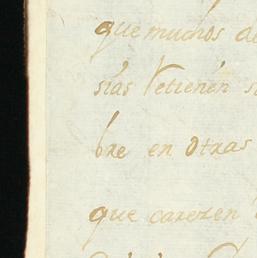 que muchos de
sías Vetienen s
bre en otras
que carezen